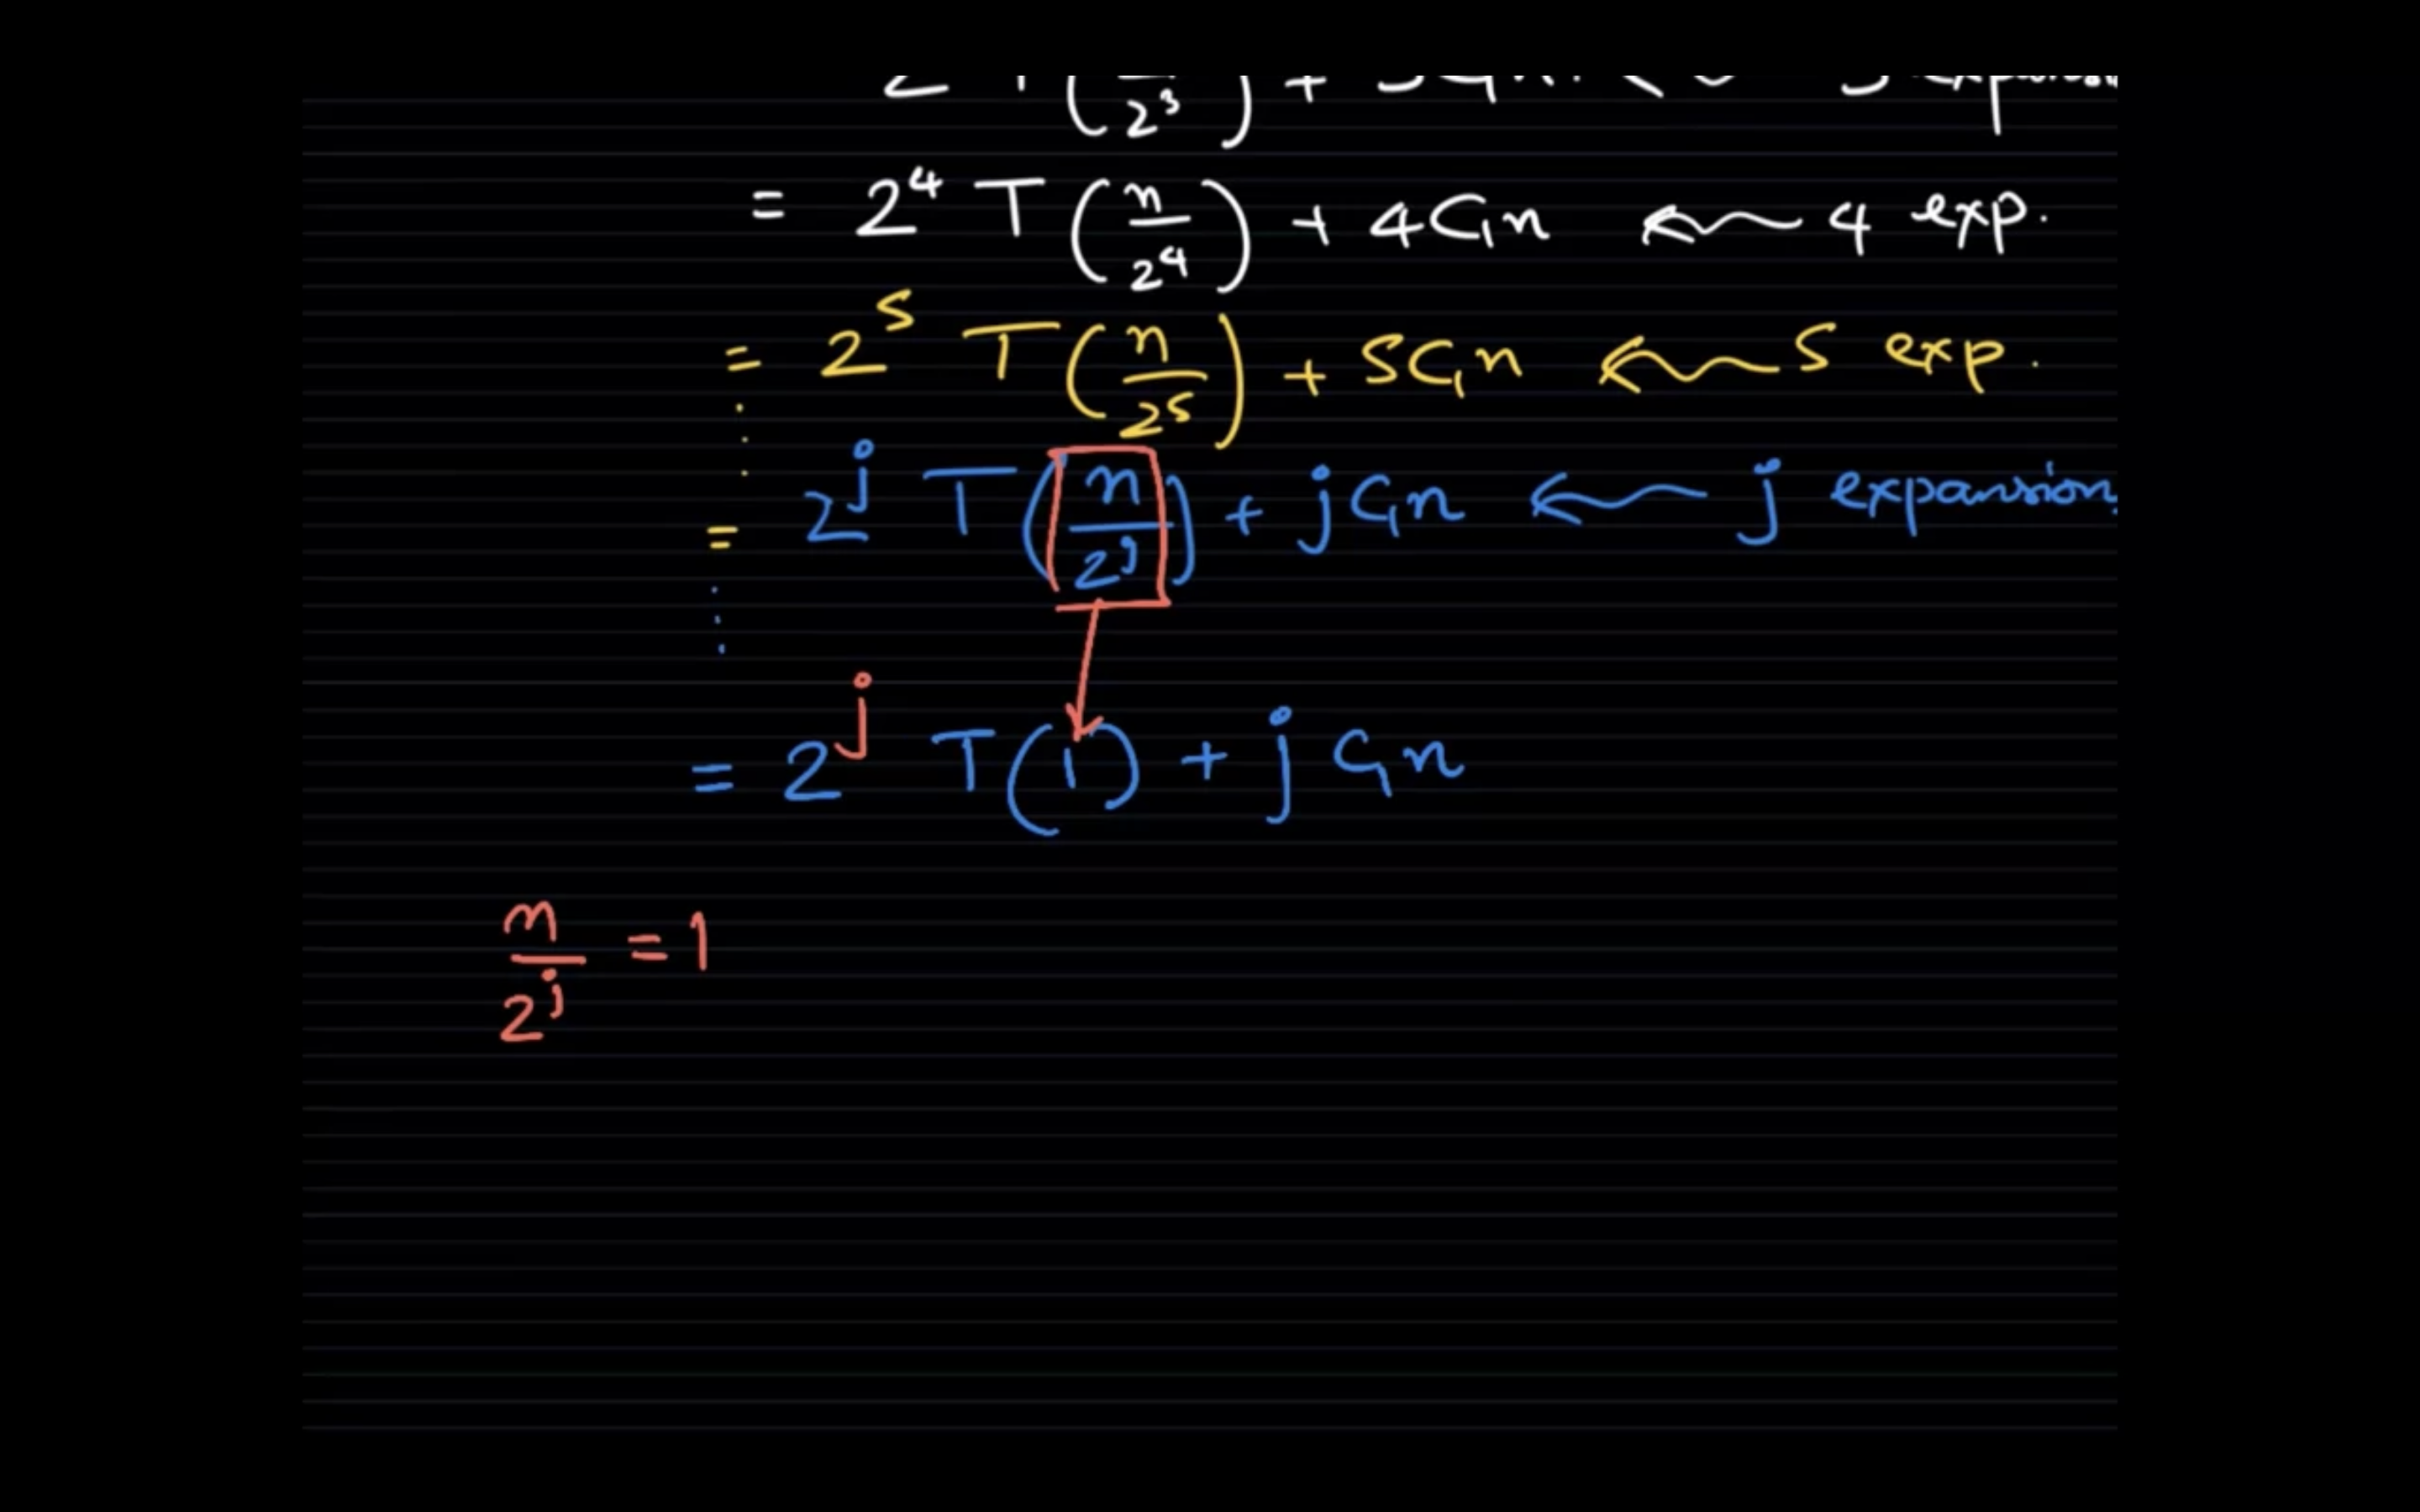 2 T(n/2³) + 3C₁n
= 2⁴ T(n/2⁴) + 4C₁n ← 4 exp.
= 2⁵ T(n/2⁵) + 5C₁n ← 5 exp.
= 2ʲ T(n/2ʲ) + jC₁n ← j expansion
= 2ʲ T(1) + jC₁n
n/2ʲ = 1